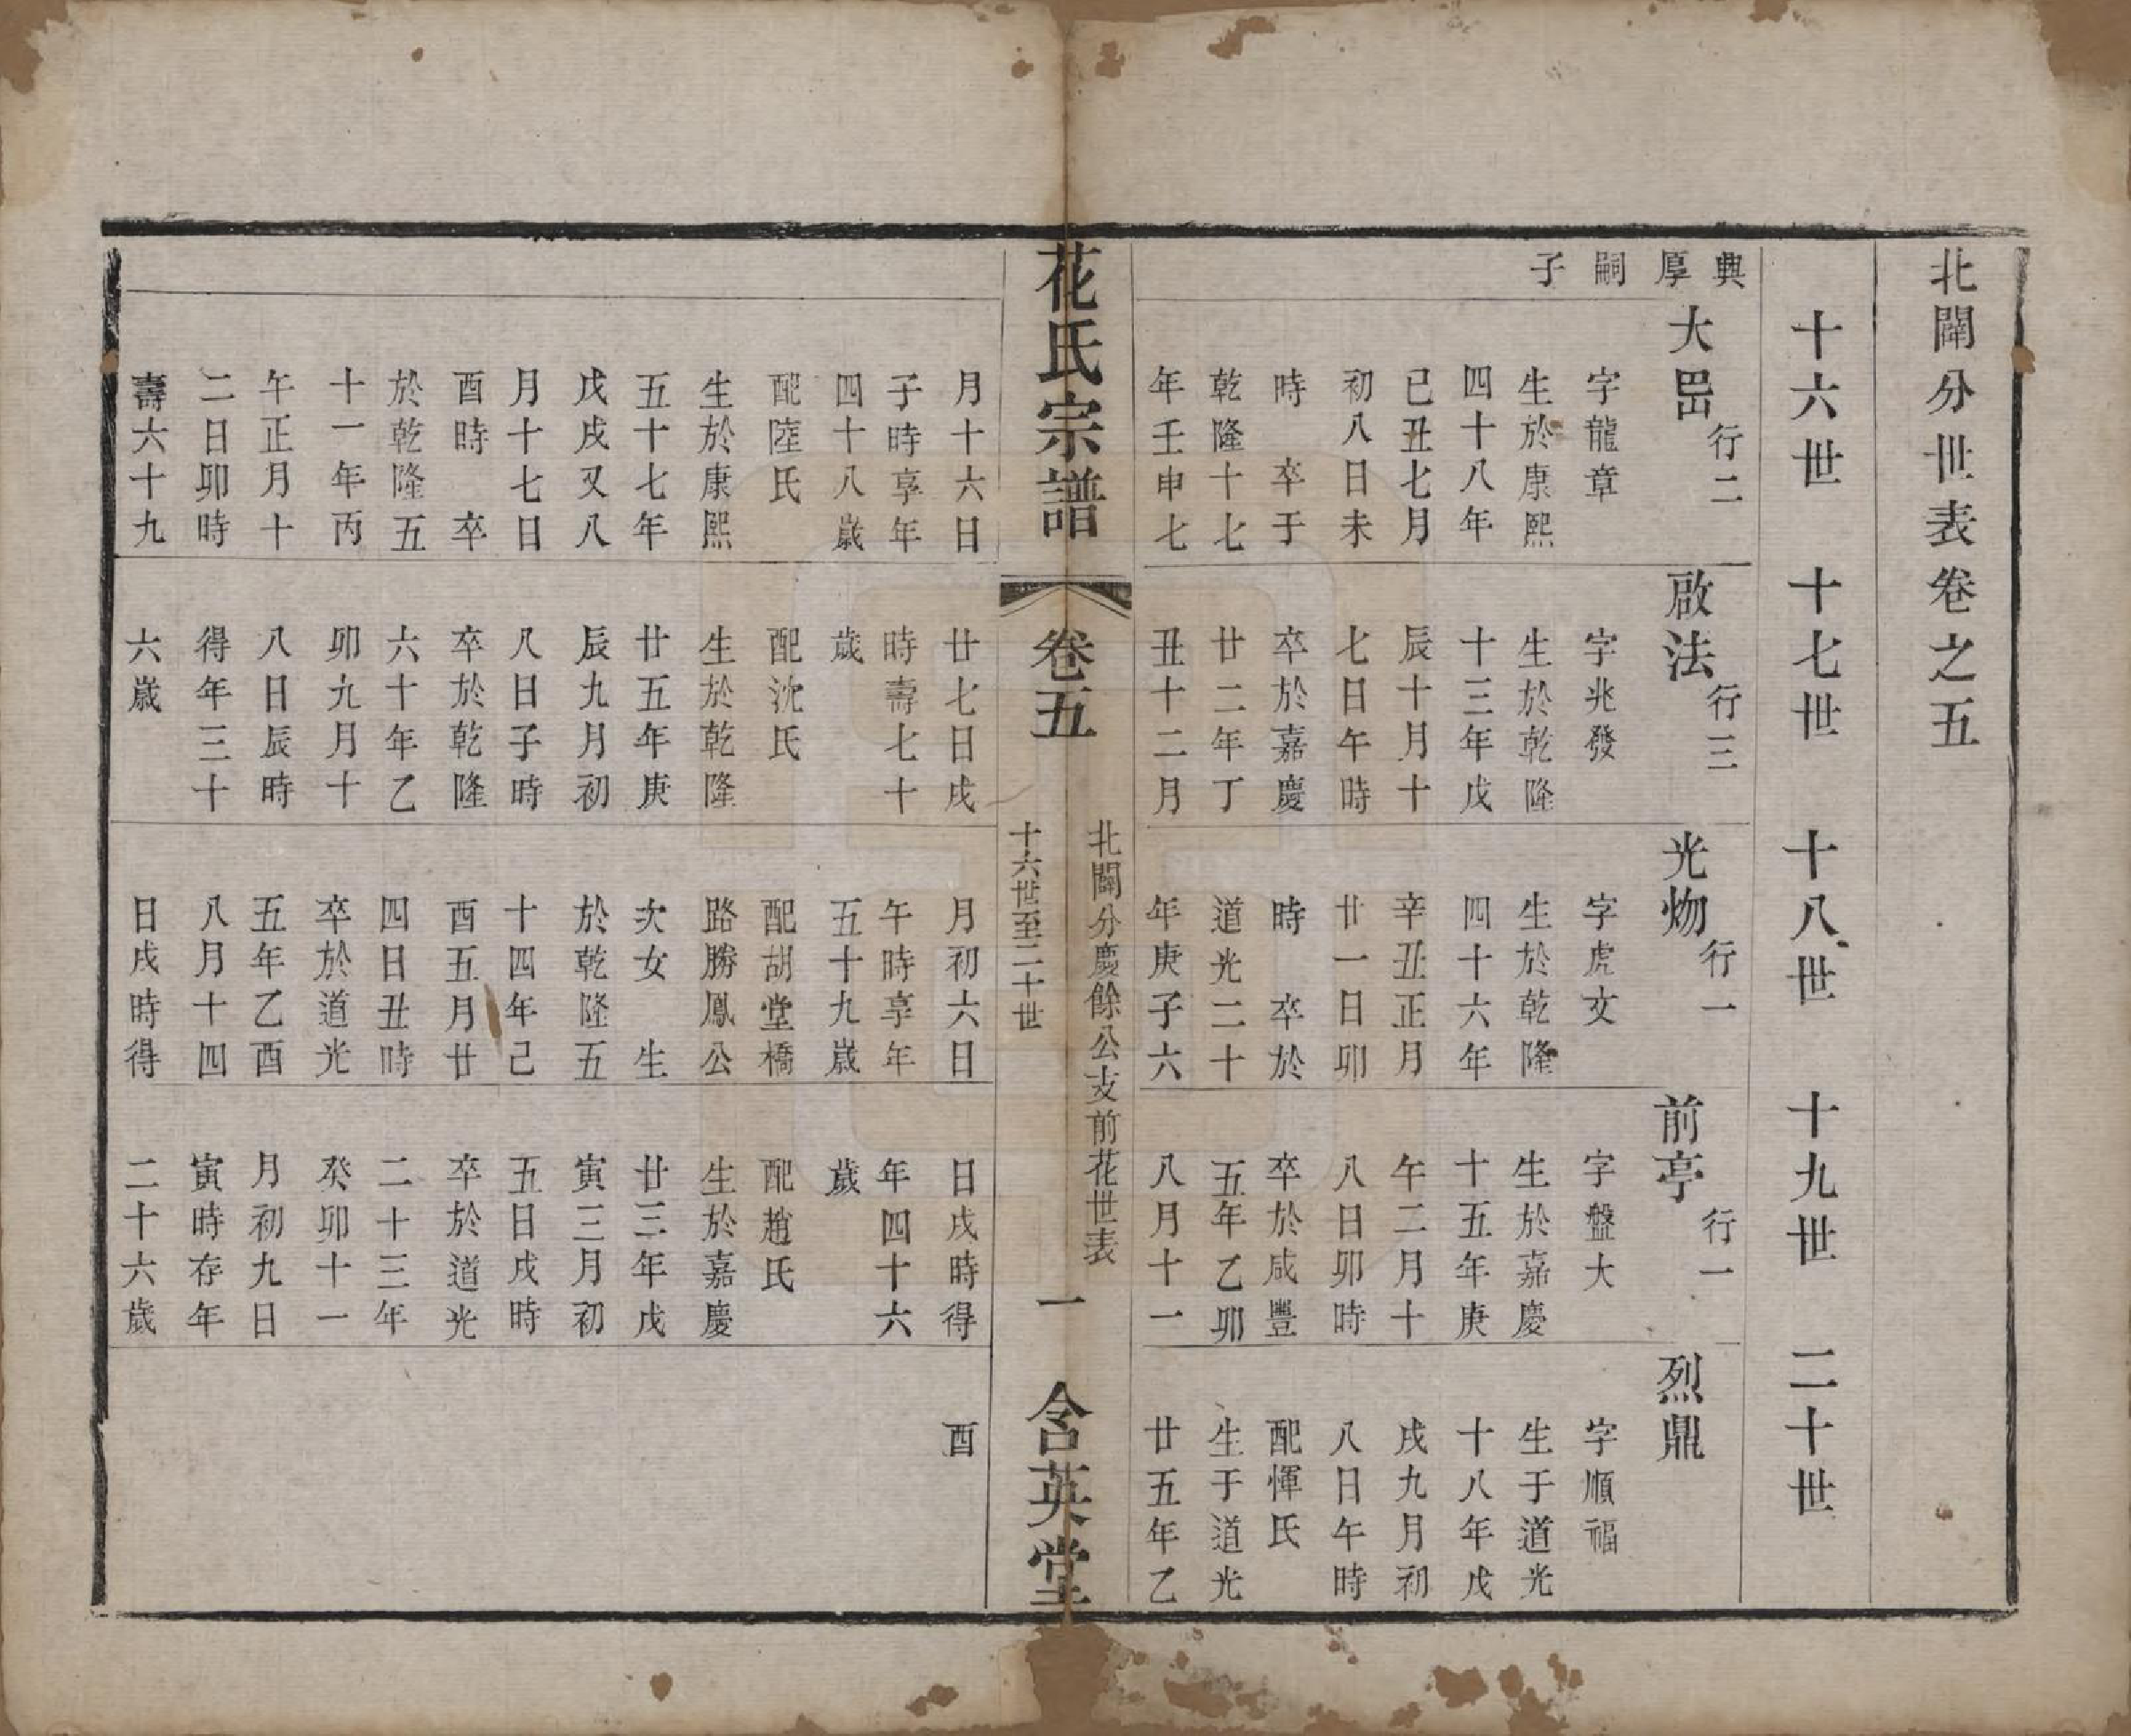 北闈分世表卷之五
十六世
十七世
十八世
十九世
二十世
典厚嗣子
大嵒 行二
字龍章
生於康熙
四十八年
己丑七月
初八日未
時 卒于
乾隆十七
年壬申七
月十六日
子時享年
四十八歲
配陸氏
生於康熙
五十七年
戊戌又八
月十七日
酉時 卒
於乾隆五
十一年丙
午正月十
二日卯時
壽六十九
啟法 行三
字兆發
生於乾隆
十三年戊
辰十月十
七日午時
卒於嘉慶
廿二年丁
丑十二月
廿七日戌
時壽七十
歲
配沈氏
生於乾隆
廿五年庚
辰九月初
八日子時
卒於乾隆
六十年乙
卯九月十
八日辰時
得年三十
六歲
光炀 行一
字虎文
生於乾隆
四十六年
辛丑正月
廿一日卯
時 卒於
道光二十
年庚子六
月初六日
午時享年
五十九歲
配胡堂橋
路勝鳳公
次女 生
於乾隆五
十四年己
酉五月廿
四日丑時
卒於道光
五年乙酉
八月十四
日戌時得
前亭 行一
字盤大
生於嘉慶
十五年庚
午二月十
八日卯時
卒於咸豐
五年乙卯
八月十一
日戌時得
年四十六
歲
配趙氏
生於嘉慶
廿三年戊
寅三月初
五日戌時
卒於道光
二十三年
癸卯十一
月初九日
寅時存年
二十六歲
烈鼎
字順福
生于道光
十八年戊
戌九月初
八日午時
配惲氏
生于道光
廿五年乙
酉
花氏宗譜
卷五
北闈分慶餘公支前花世表
十六世至二十世
一
含英堂